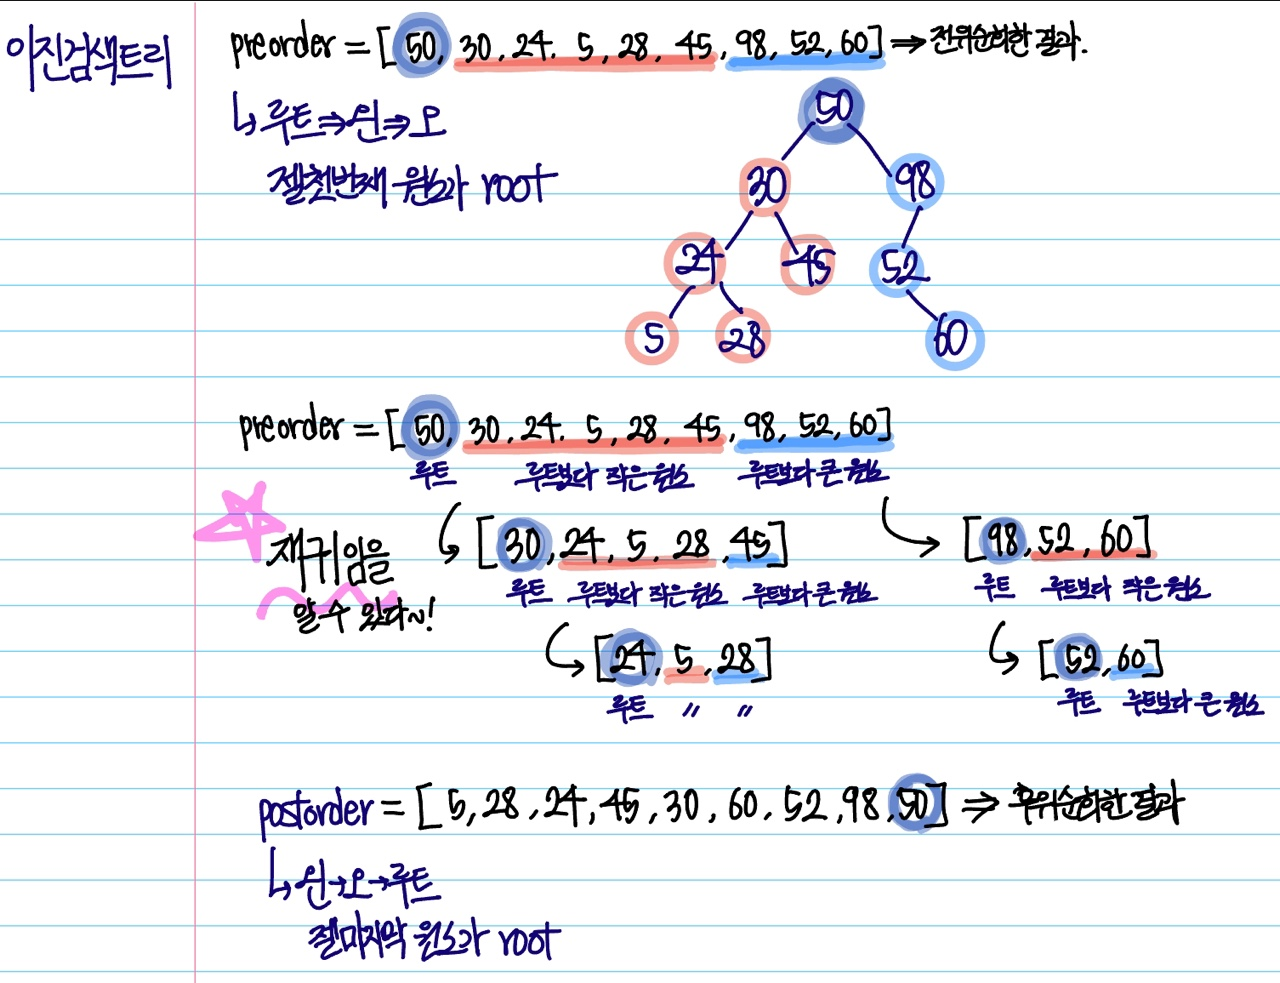 이진검색트리
preorder = [ 50, 30, 24. 5, 28, 45, 98, 52, 60] ⇒ 전위순회한 결과.
↳ 루트⇒왼⇒오
젤첫번째 원소가 root
50
30 98
24 45 52
5 28 60
preorder = [ 50, 30, 24. 5, 28, 45, 98, 52, 60]
루트 루트보다 작은 원소 루트보다 큰 원소
[30, 24, 5, 28, 45] [98, 52, 60]
재귀임을
알 수 있다~!
루트 루트보다 작은 원소 루트보다 큰 원소 루트 루트보다 작은 원소
[24, 5, 28] [52, 60]
루트 〃 〃 루트 루트보다 큰 원소
postorder = [ 5, 28, 24, 45, 30, 60, 52, 98, 50] ⇒ 후위순회한 결과
↳ 왼→오→루트
젤마지막 원소가 root